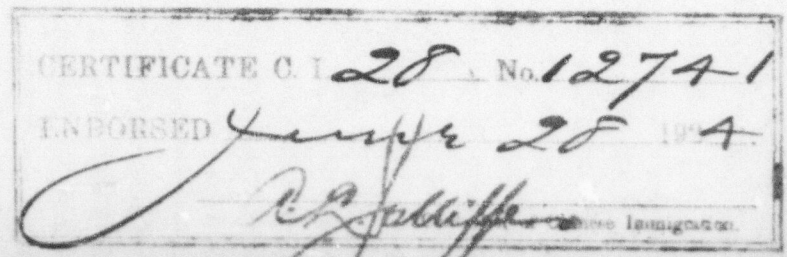 CERTIFICATE C. I. 28, No. 12741
ENDORSED June 28 1924
Chinese Immigration.